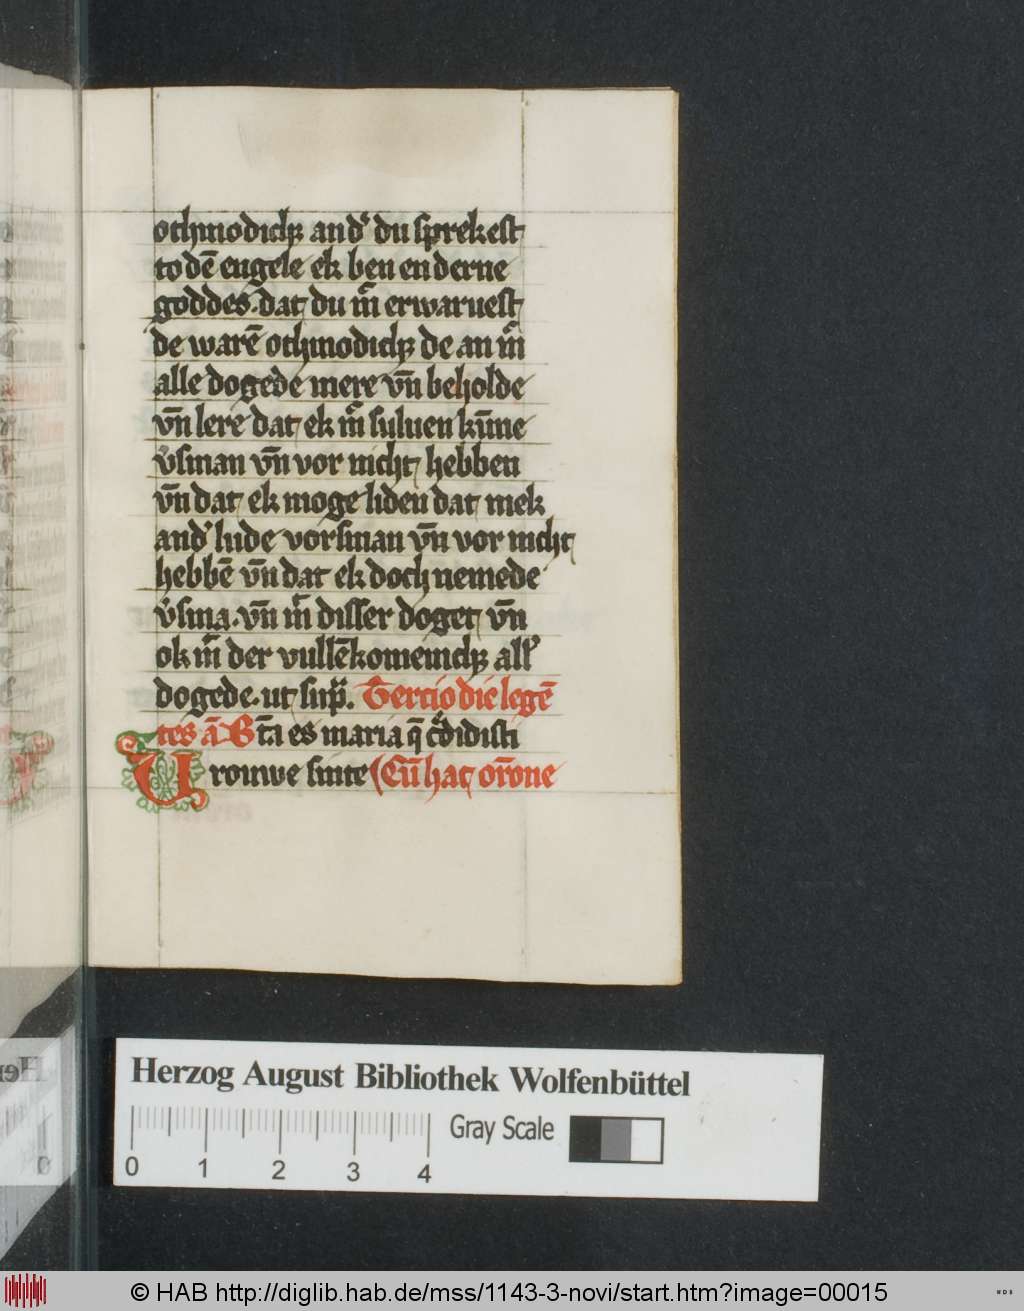 othmodicheit and' du sprekest
to dē engele ek ben en derne
goddes. dat du m̄ erwaruest
de warē othmodicheit de an m̄
alle dogede mere vn̄ beholde
vn̄ lere dat ek m̄ suluen kūne
v'sman vn̄ vor nicht hebben
vn̄ dat ek moge liden dat mek
and' lude vorsman vn̄ vor nicht
hebbē vn̄ dat ek doch nemede
v'sma. vn̄ m̄ disser doget vn̄
ok m̄ der vullēkomenicheit all'
dogede. ut sup̄. Tercio die legē
tes ā B
t̄a es maria q̄ c'didisti
Vrouwe sinte Cū hac or̄one
Herzog August Bibliothek Wolfenbüttel
Gray Scale
0 1 2 3 4
© HAB http://diglib.hab.de/mss/1143-3-novi/start.htm?image=00015